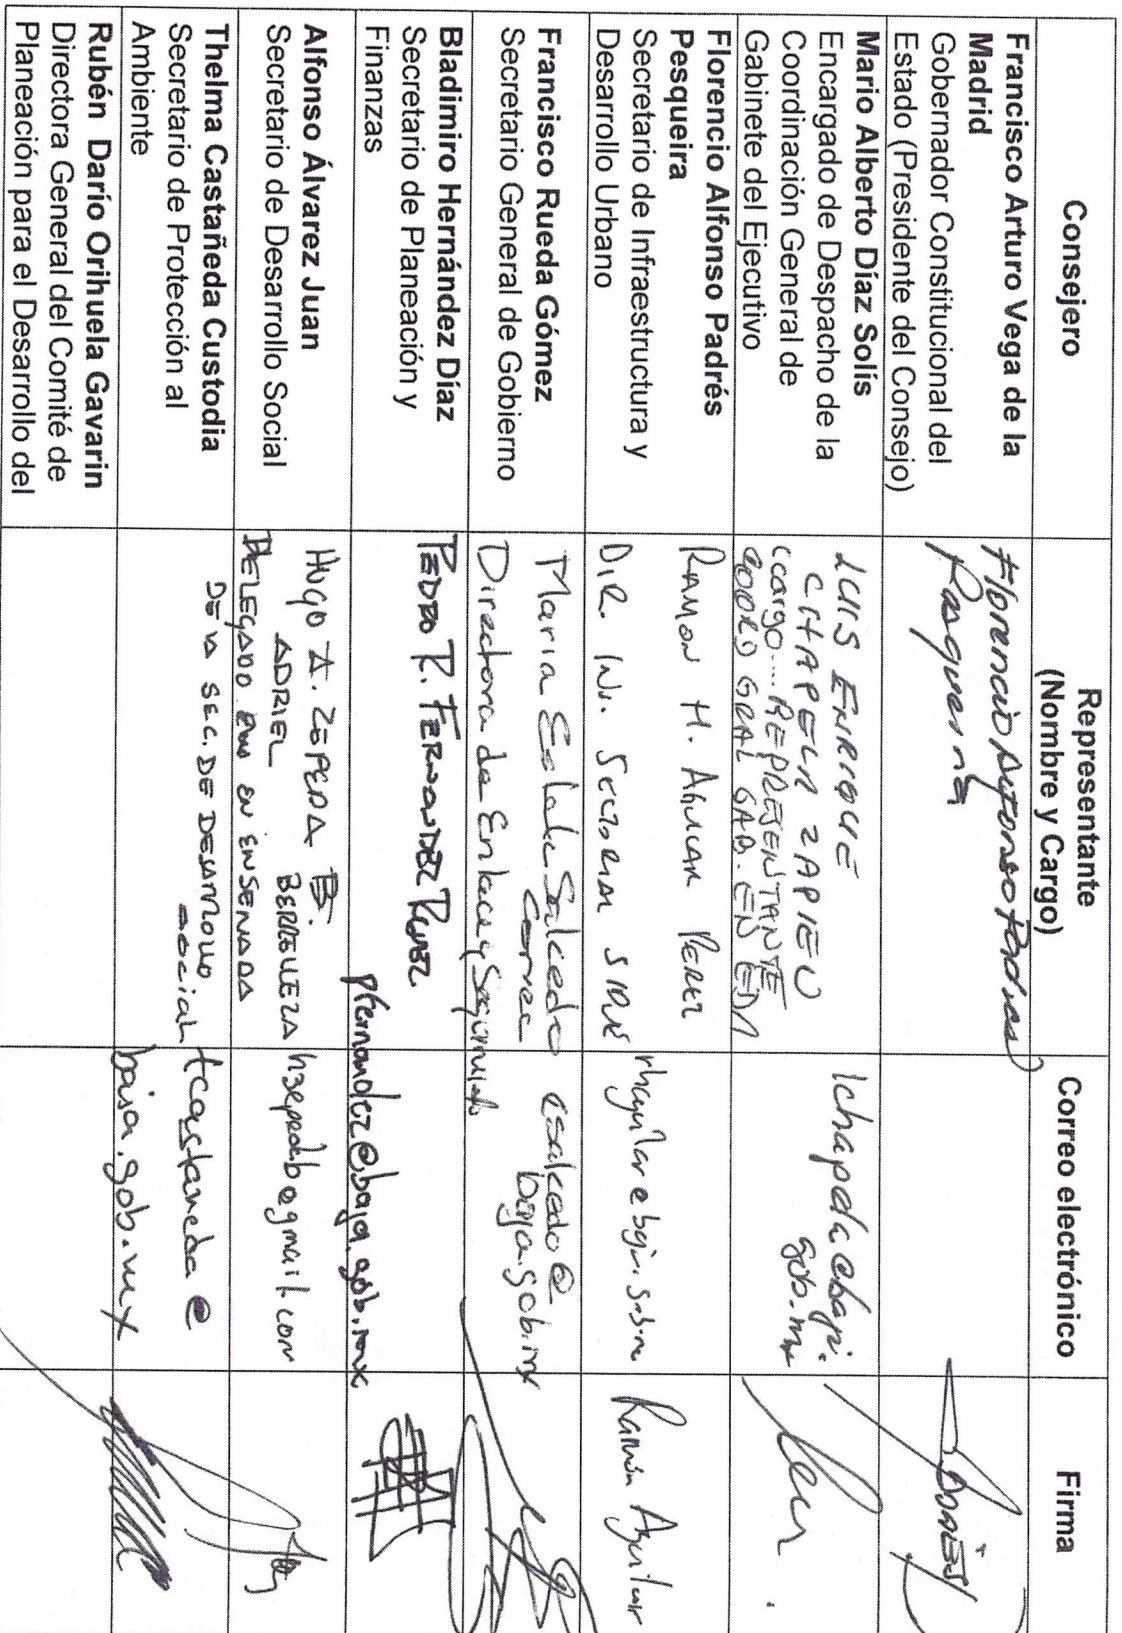 Consejero
Representante
(Nombre y Cargo)
Correo electrónico
Firma
Francisco Arturo Vega de la
Madrid
Gobernador Constitucional del
Estado (Presidente del Consejo)
Florencio Alfonso Padres
Pesqueira
Mario Alberto Díaz Solís
Encargado de Despacho de la
Coordinación General de
Gabinete del Ejecutivo
LUIS ENRIQUE
CHAPELA ZAPIEN
(cargo.... REPRESENTANTE
COORD GRAL GAB. EN
lchapela@baja.
gob.mx
Florencio Alfonso Padrés
Pesqueira
Secretario de Infraestructura y
Desarrollo Urbano
RAMON H. AGUILAR PEREZ
DIR. INV.
Ramón Aguilar
Francisco Rueda Gómez
Secretario General de Gobierno
Maria Estela Salcedo
Directora de Enlace y Seguimiento
esalcedo@
baja.gob.mx
Bladimiro Hernández Díaz
Secretario de Planeación y
Finanzas
PEDRO R. FERNANDEZ
pfernandez@baja.gob.mx
Alfonso Álvarez Juan
Secretario de Desarrollo Social
HUGO A. ZEPEDA B.
ADRIEL BERRELLEZA
DELEGADO EN ENSENADA
DE LA SEC. DE DESARROLLO
social
hzepedab@gmail.com
Thelma Castañeda Custodia
Secretario de Protección al
Ambiente
tcastaneda@
baja.gob.mx
Rubén Darío Orihuela Gavarin
Directora General del Comité de
Planeación para el Desarrollo del